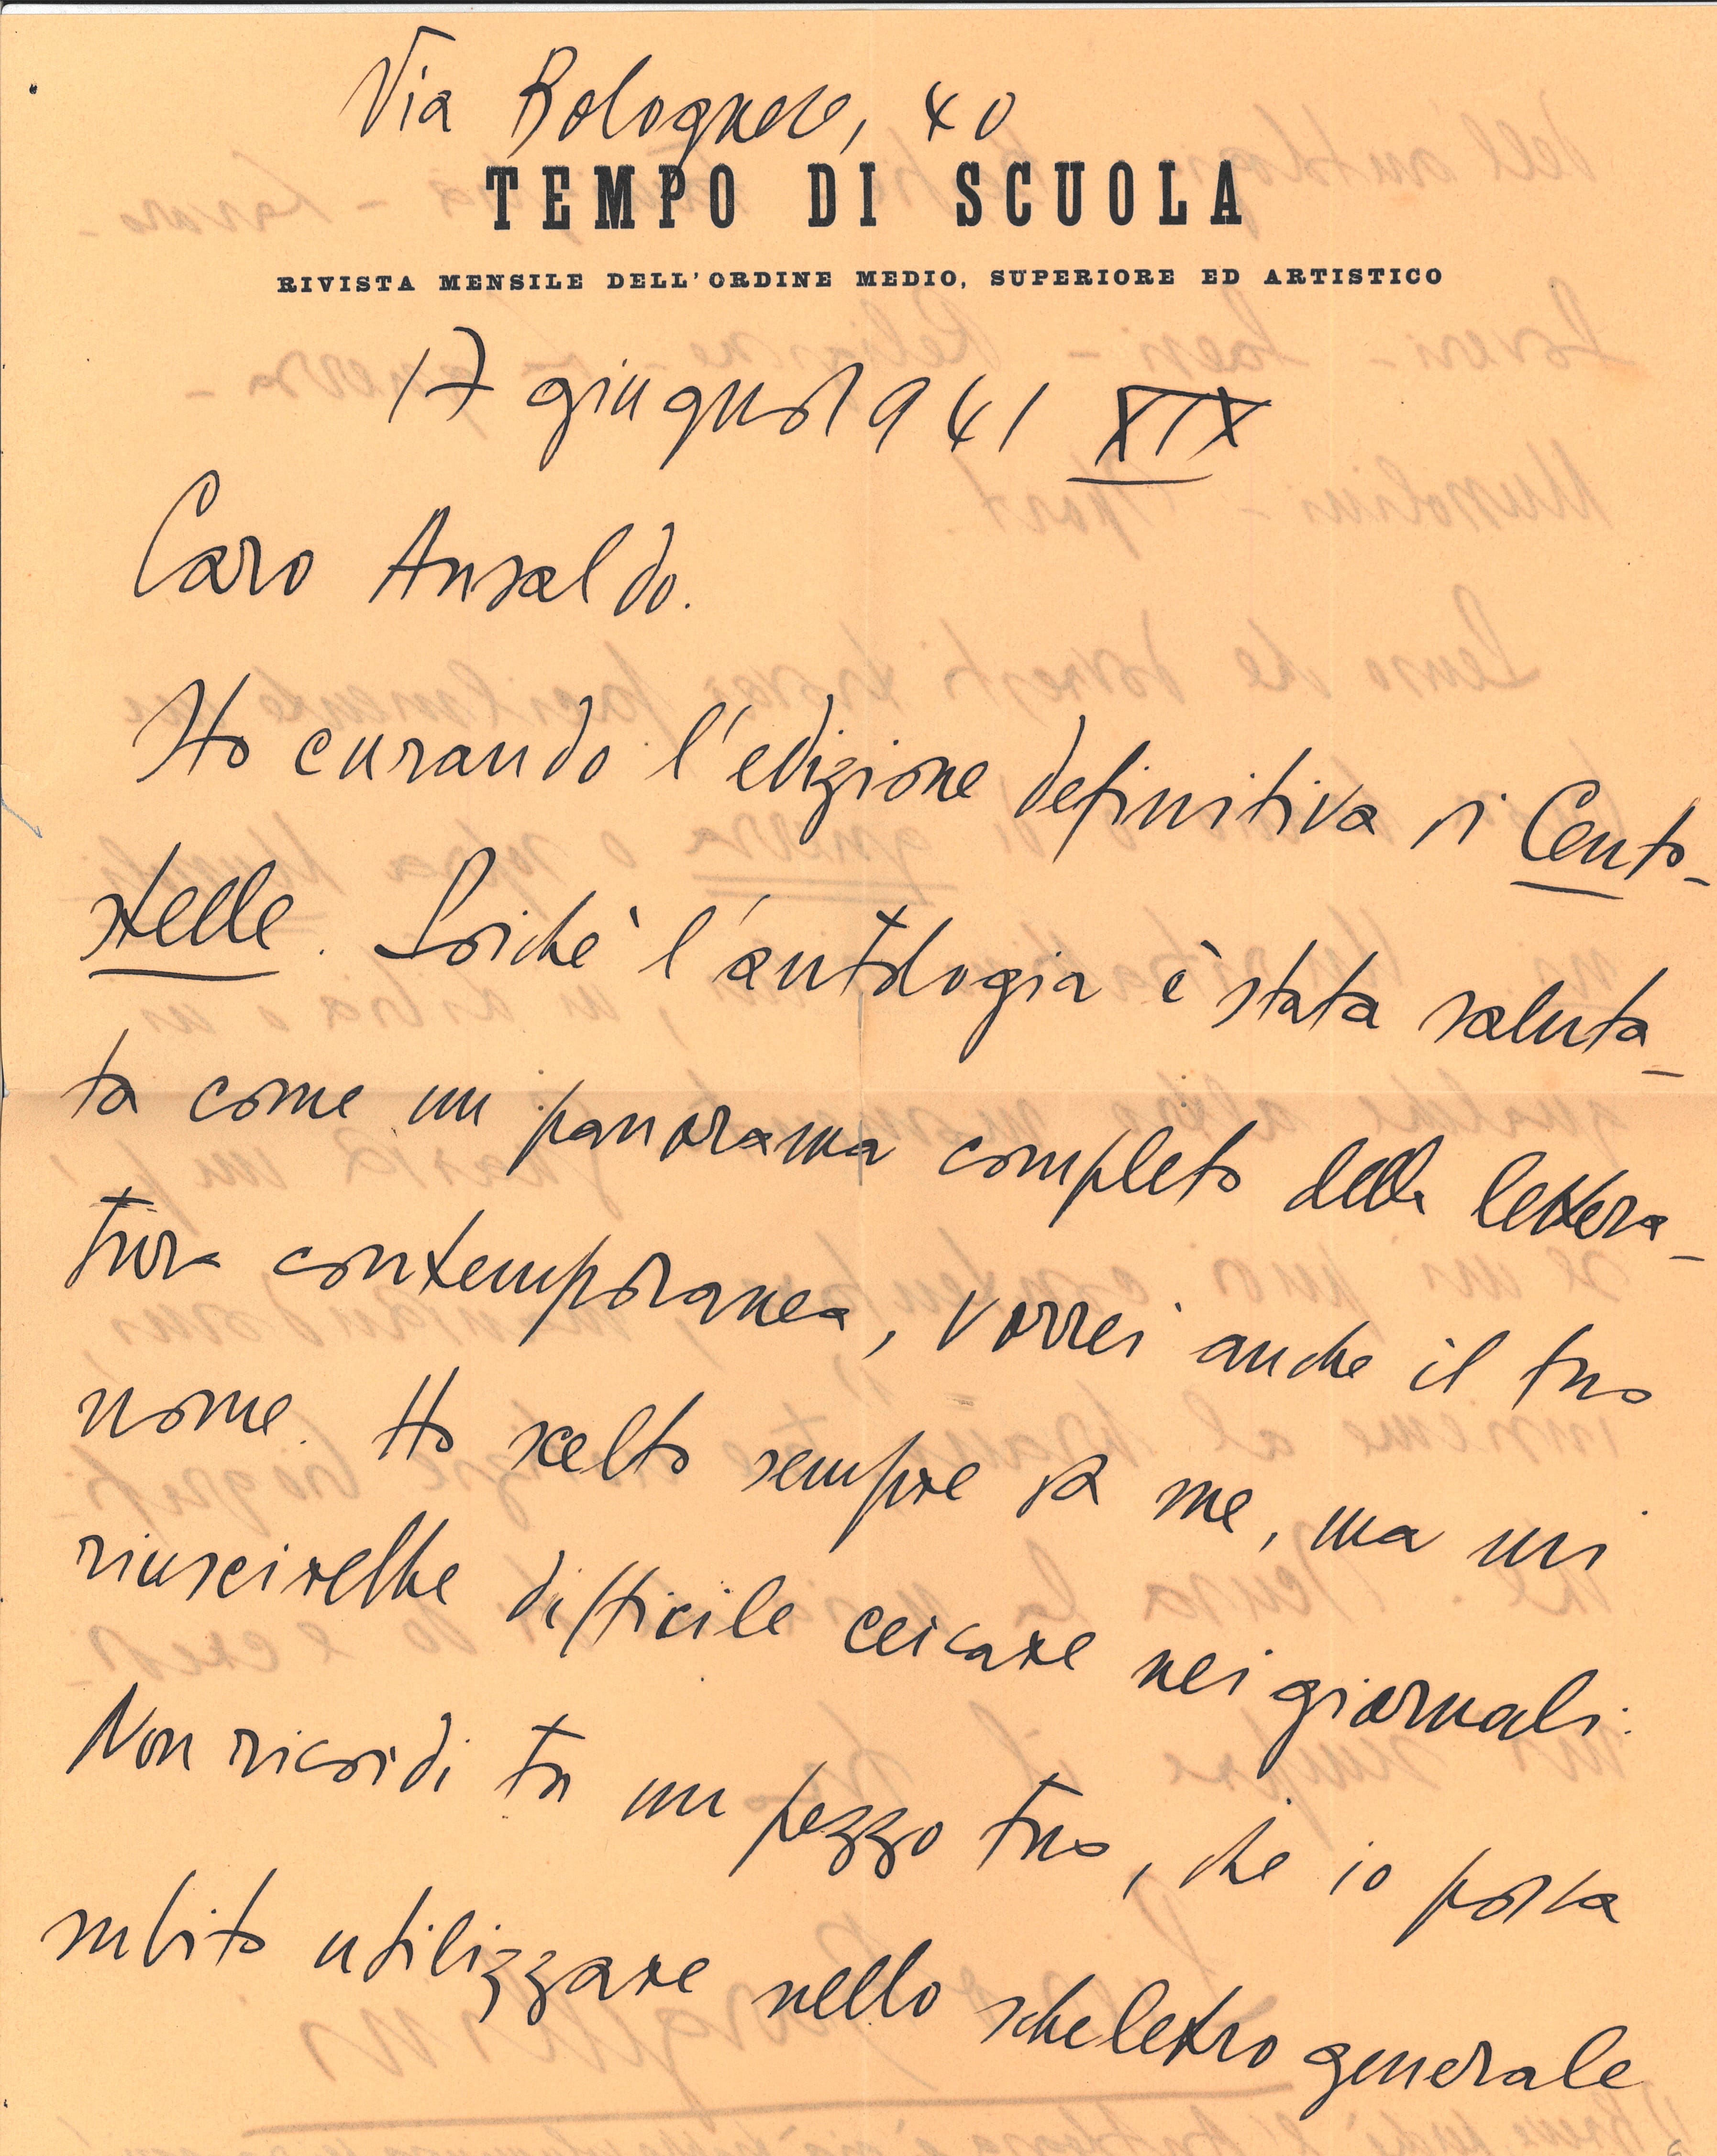 Via Bolognese, 40
TEMPO DI SCUOLA
RIVISTA MENSILE DELL'ORDINE MEDIO, SUPERIORE ED ARTISTICO
17 giugno 1941 XIX
Caro Ansaldo.
Sto curando l'edizione definitiva di Cento-
stelle. Poichè l'antologia è stata saluta-
ta come un panorama completo della lettera-
tura contemporanea, vorrei anche il tuo
nome. Ho scelto sempre da me, ma mi
riuscirebbe difficile cercare nei giornali.
Non ricordi tu un pezzo tuo, che io possa
subito utilizzare nello scheletro generale